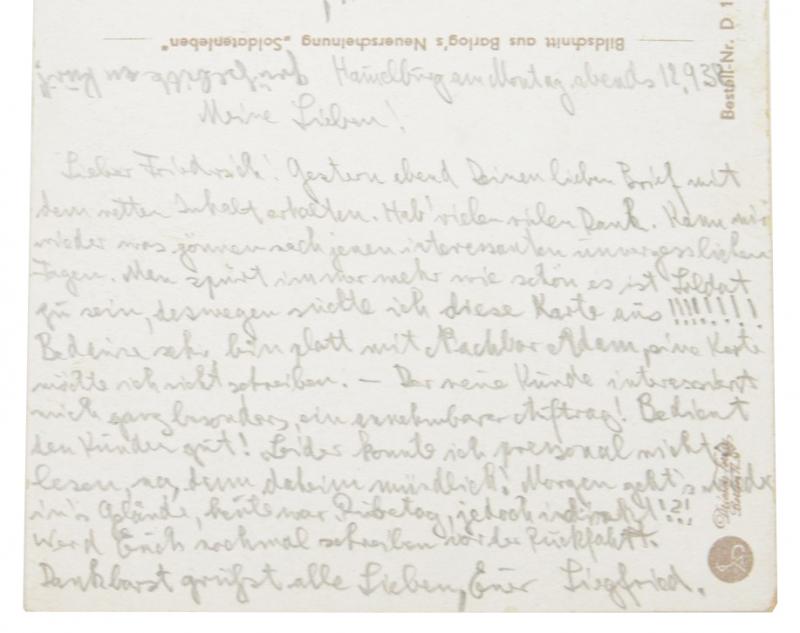 Bildschnitt aus Barlog's Neuerscheinung „Soldatenleben"
Bestell-Nr. D 1
Hammelburg am Montag abends 12.9.38
Meine Lieben!
Lieber Friedrich! Gestern abend Deinen lieben Brief mit
dem netten Inhalt erhalten. Hab' vielen vielen Dank. Kann mir
wieder was gönnen nach jenen interessanten unvergesslichen
Tagen. Man spürt immer mehr wie schön es ist Soldat
zu sein, deswegen suchte ich diese Karte aus !!!!!!!!
Bedaure sehr, bin platt mit Nachbar Adam, eine Karte
möchte ich nicht schreiben. – Der neue Kunde interessiert
mich ganz besonders, ein annehmbarer Auftrag! Bedient
den Kunden gut! Leider konnte ich personal nichts
lesen, na, dann daheim mündlich! Morgen geht's wieder
in's Gelände, heute war Ruhetag, jedoch indirekt!?!
Werd Euch nochmal schreiben vor der Rückfahrt.
Dankbarst grüßt alle Lieben, Euer Siegfried.